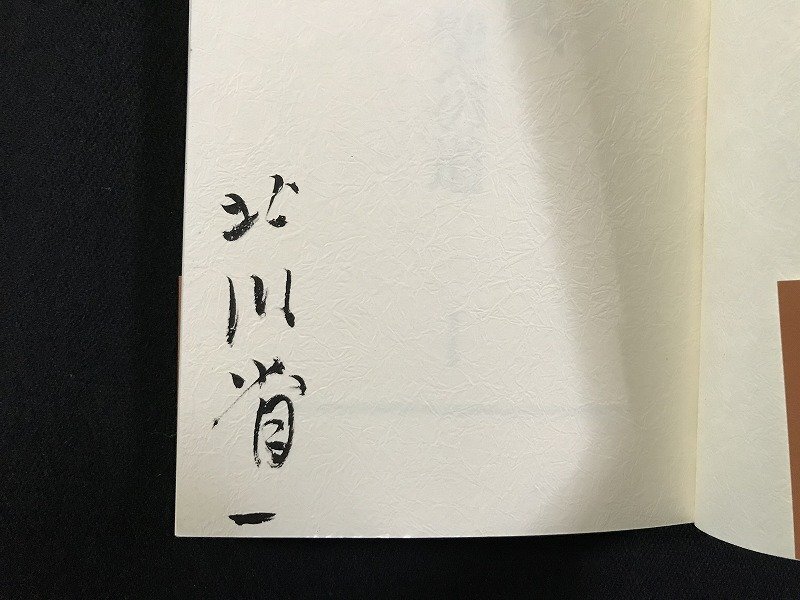 北川省一